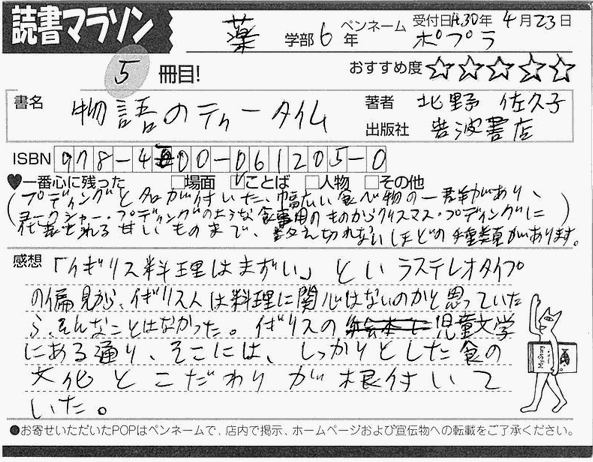 読書マラソン
薬 学部 6 年 ペンネーム ポプラ 受付日 H.30年 4月23日
5 冊目! おすすめ度 ☆☆☆☆☆
書名 物語のティータイム 著者 北野 佐久子
出版社 岩波書店
ISBN 978-4-00-061205-0
♥一番心に残った □場面 ☑ことば □人物 □その他
(プディングと名が付いた、幅広い食べ物の一群があり、
ヨークシャー・プディングのような食事用のものからクリスマス・プディングに
代表される甘いものまで、数え切れないほどの種類があります。)
感想 「イギリス料理はまずい」というステレオタイプ
の偏見から、イギリス人は料理に関心はないのかと思っていた
ら、そんなことはなかった。イギリスの児童文学
にある通り、そこには、しっかりとした食の
文化とこだわりが根付いて
いた。
●お寄せいただいたPOPはペンネームで、店内で掲示、ホームページおよび宣伝物への転載をご了承ください。